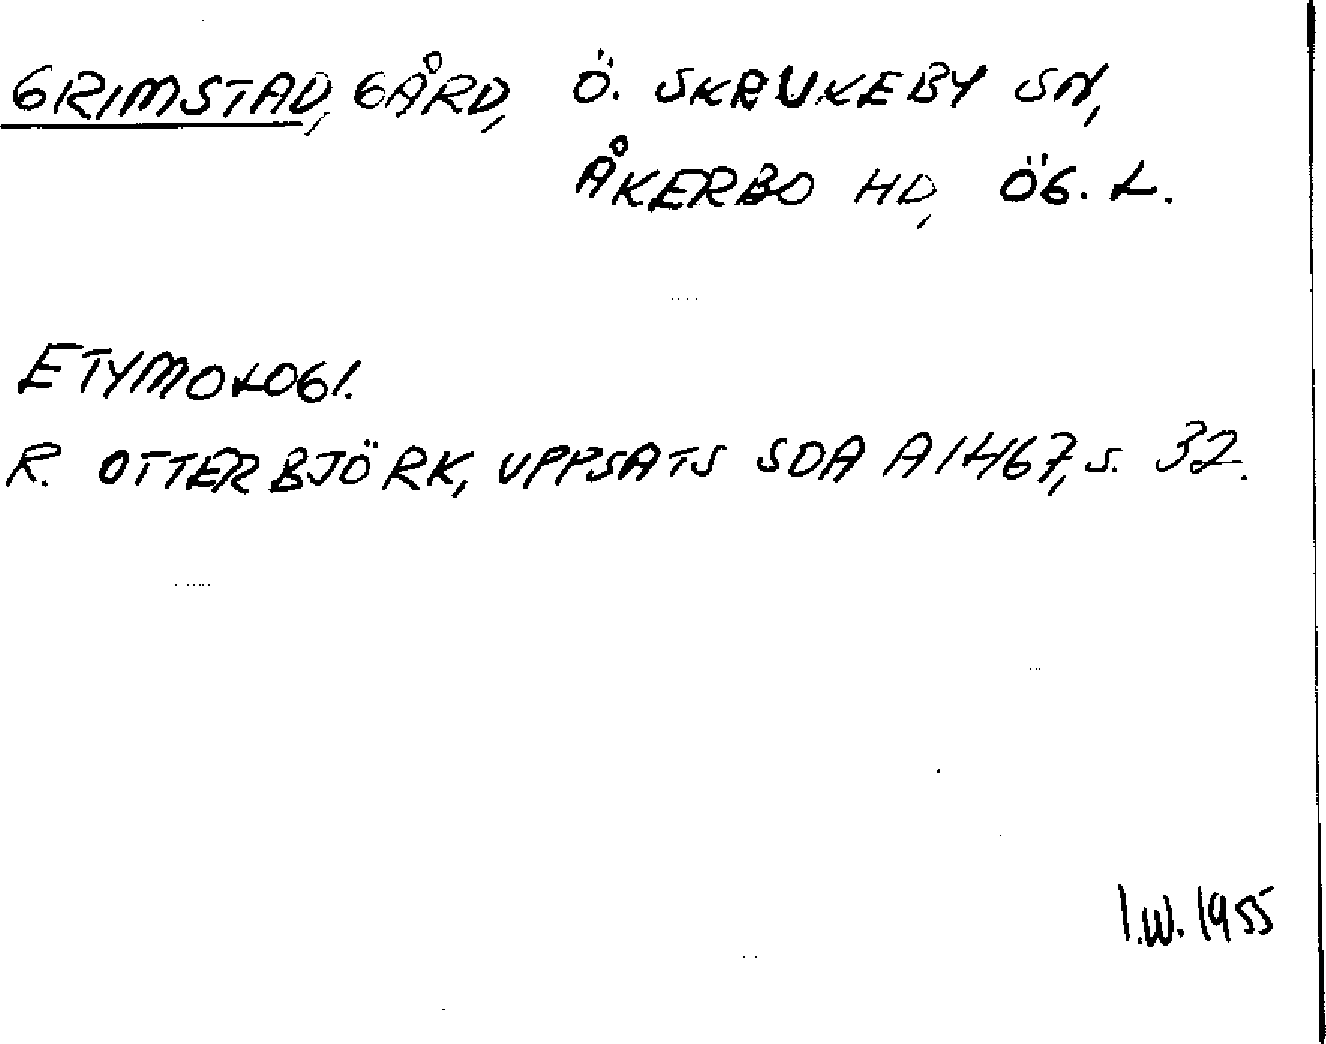 GRIMSTAD, GÅRD, Ö. SKRUKEBY SN,
ÅKERBO HD, ÖG. L.
ETYMOLOGI.
R. OTTERBJÖRK, UPPSATS SOA A1467, S. 32.
I.W. 1955